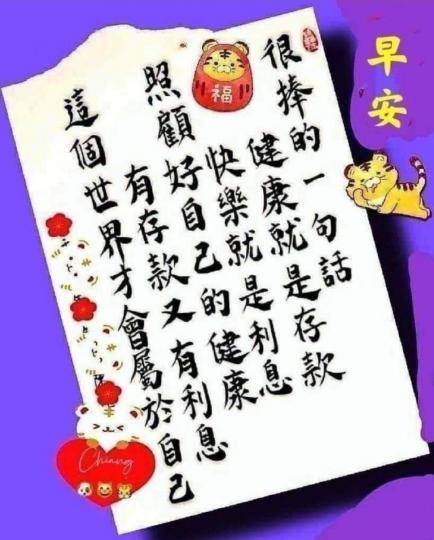 早安
很棒的一句話
健康就是存款
快樂就是利息
照顧好自己的健康
有存款又有利息
這個世界才會屬於自己
福
Chiang